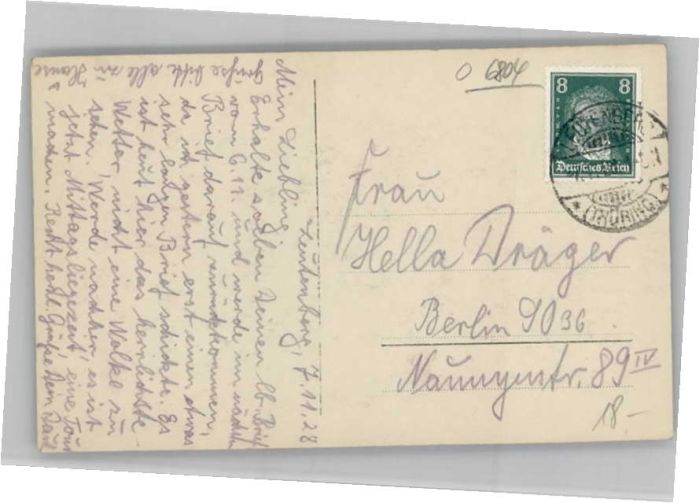 Leutenberg, 7.11.28
Mein Liebling,
Erhalte soeben Deinen lb. Brief
vom 6.11. und werde im nächsten
Brief darauf zurückkommen,
da ich gestern erst einen etwas
sehr langen Brief schickte. Es
ist heut hier das herrlichste
Wetter, nicht eine Wolke zu
sehen. Werde nachher, es ist
jetzt Mittagsliegezeit eine Tour
machen. Recht herzl. Grüße, Dein
Grüße bitte alle zu Hause
O 6804
8 8
Deutsches Reich
(THÜRING.)
Frau
Hella Dräger
Berlin SO 36
Naunynstr. 89 IV
18.-